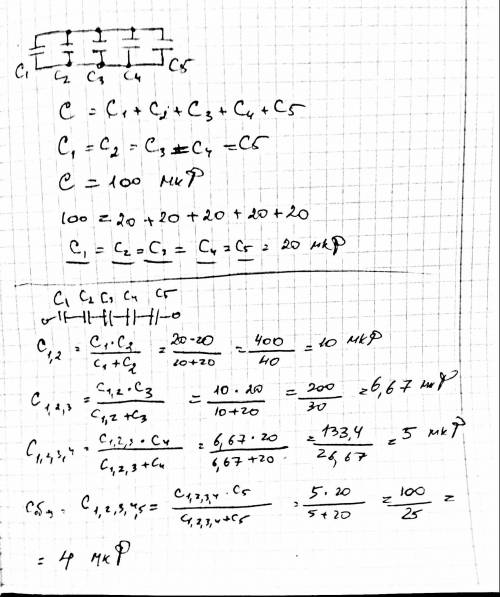 C₁ C₂ C₃ C₄ C5
C = C₁ + C₂ + C₃ + C₄ + C5
C₁ = C₂ = C₃ = C₄ = C5
C = 100 мкФ
100 = 20 + 20 + 20 + 20 + 20
C₁ = C₂ = C₃ = C₄ = C₅ = 20 мкФ
C₁ C₂ C₃ C₄ C5
C₁,₂ = (C₁ · C₂)/(C₁ + C₂) = (20 · 20)/(20+20) = 400/40 = 10 мкФ
C₁,₂,₃ = (C₁,₂ · C₃)/(C₁,₂ + C₃) = (10 · 20)/(10+20) = 200/30 = 6,67 мкФ
C₁,₂,₃,₄ = (C₁,₂,₃ · C₄)/(C₁,₂,₃ + C₄) = (6,67 · 20)/(6,67 + 20) = 133,4/26,67 = 5 мкФ
Cобщ = C₁,₂,₃,₄,₅ = (C₁,₂,₃,₄ · C5)/(C₁,₂,₃,₄ + C5) = (5 · 20)/(5 + 20) = 100/25 =
= 4 мкФ